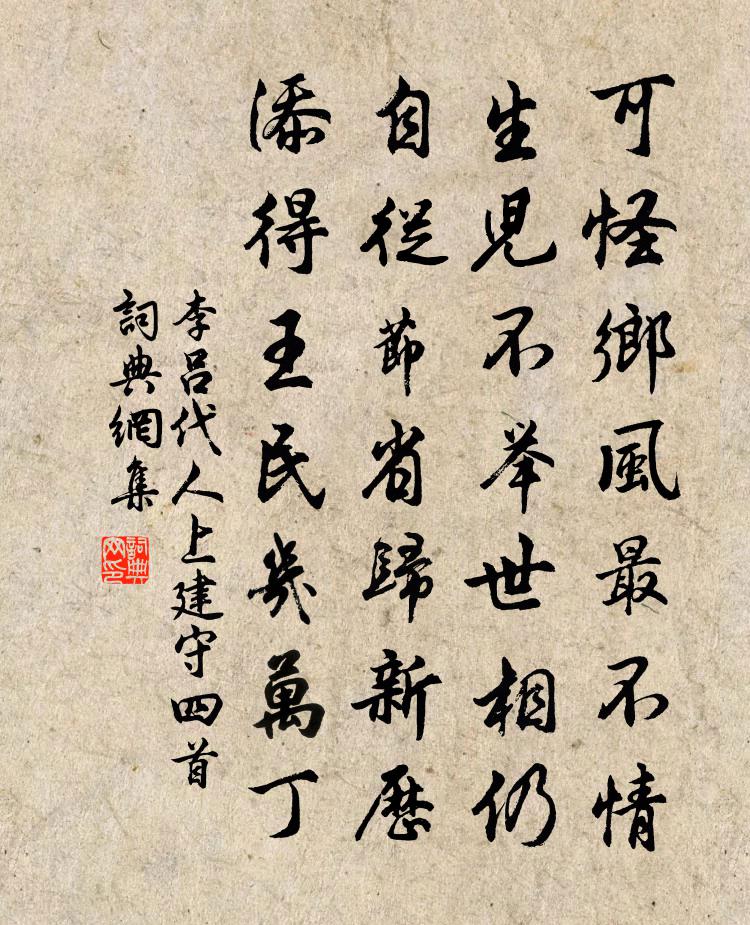 可怪鄉風最不情
生児不举世相仍
自從節省歸新歷
添得王民幾萬丁
李呂代人上建守四首
詞典網集
詞典
网印